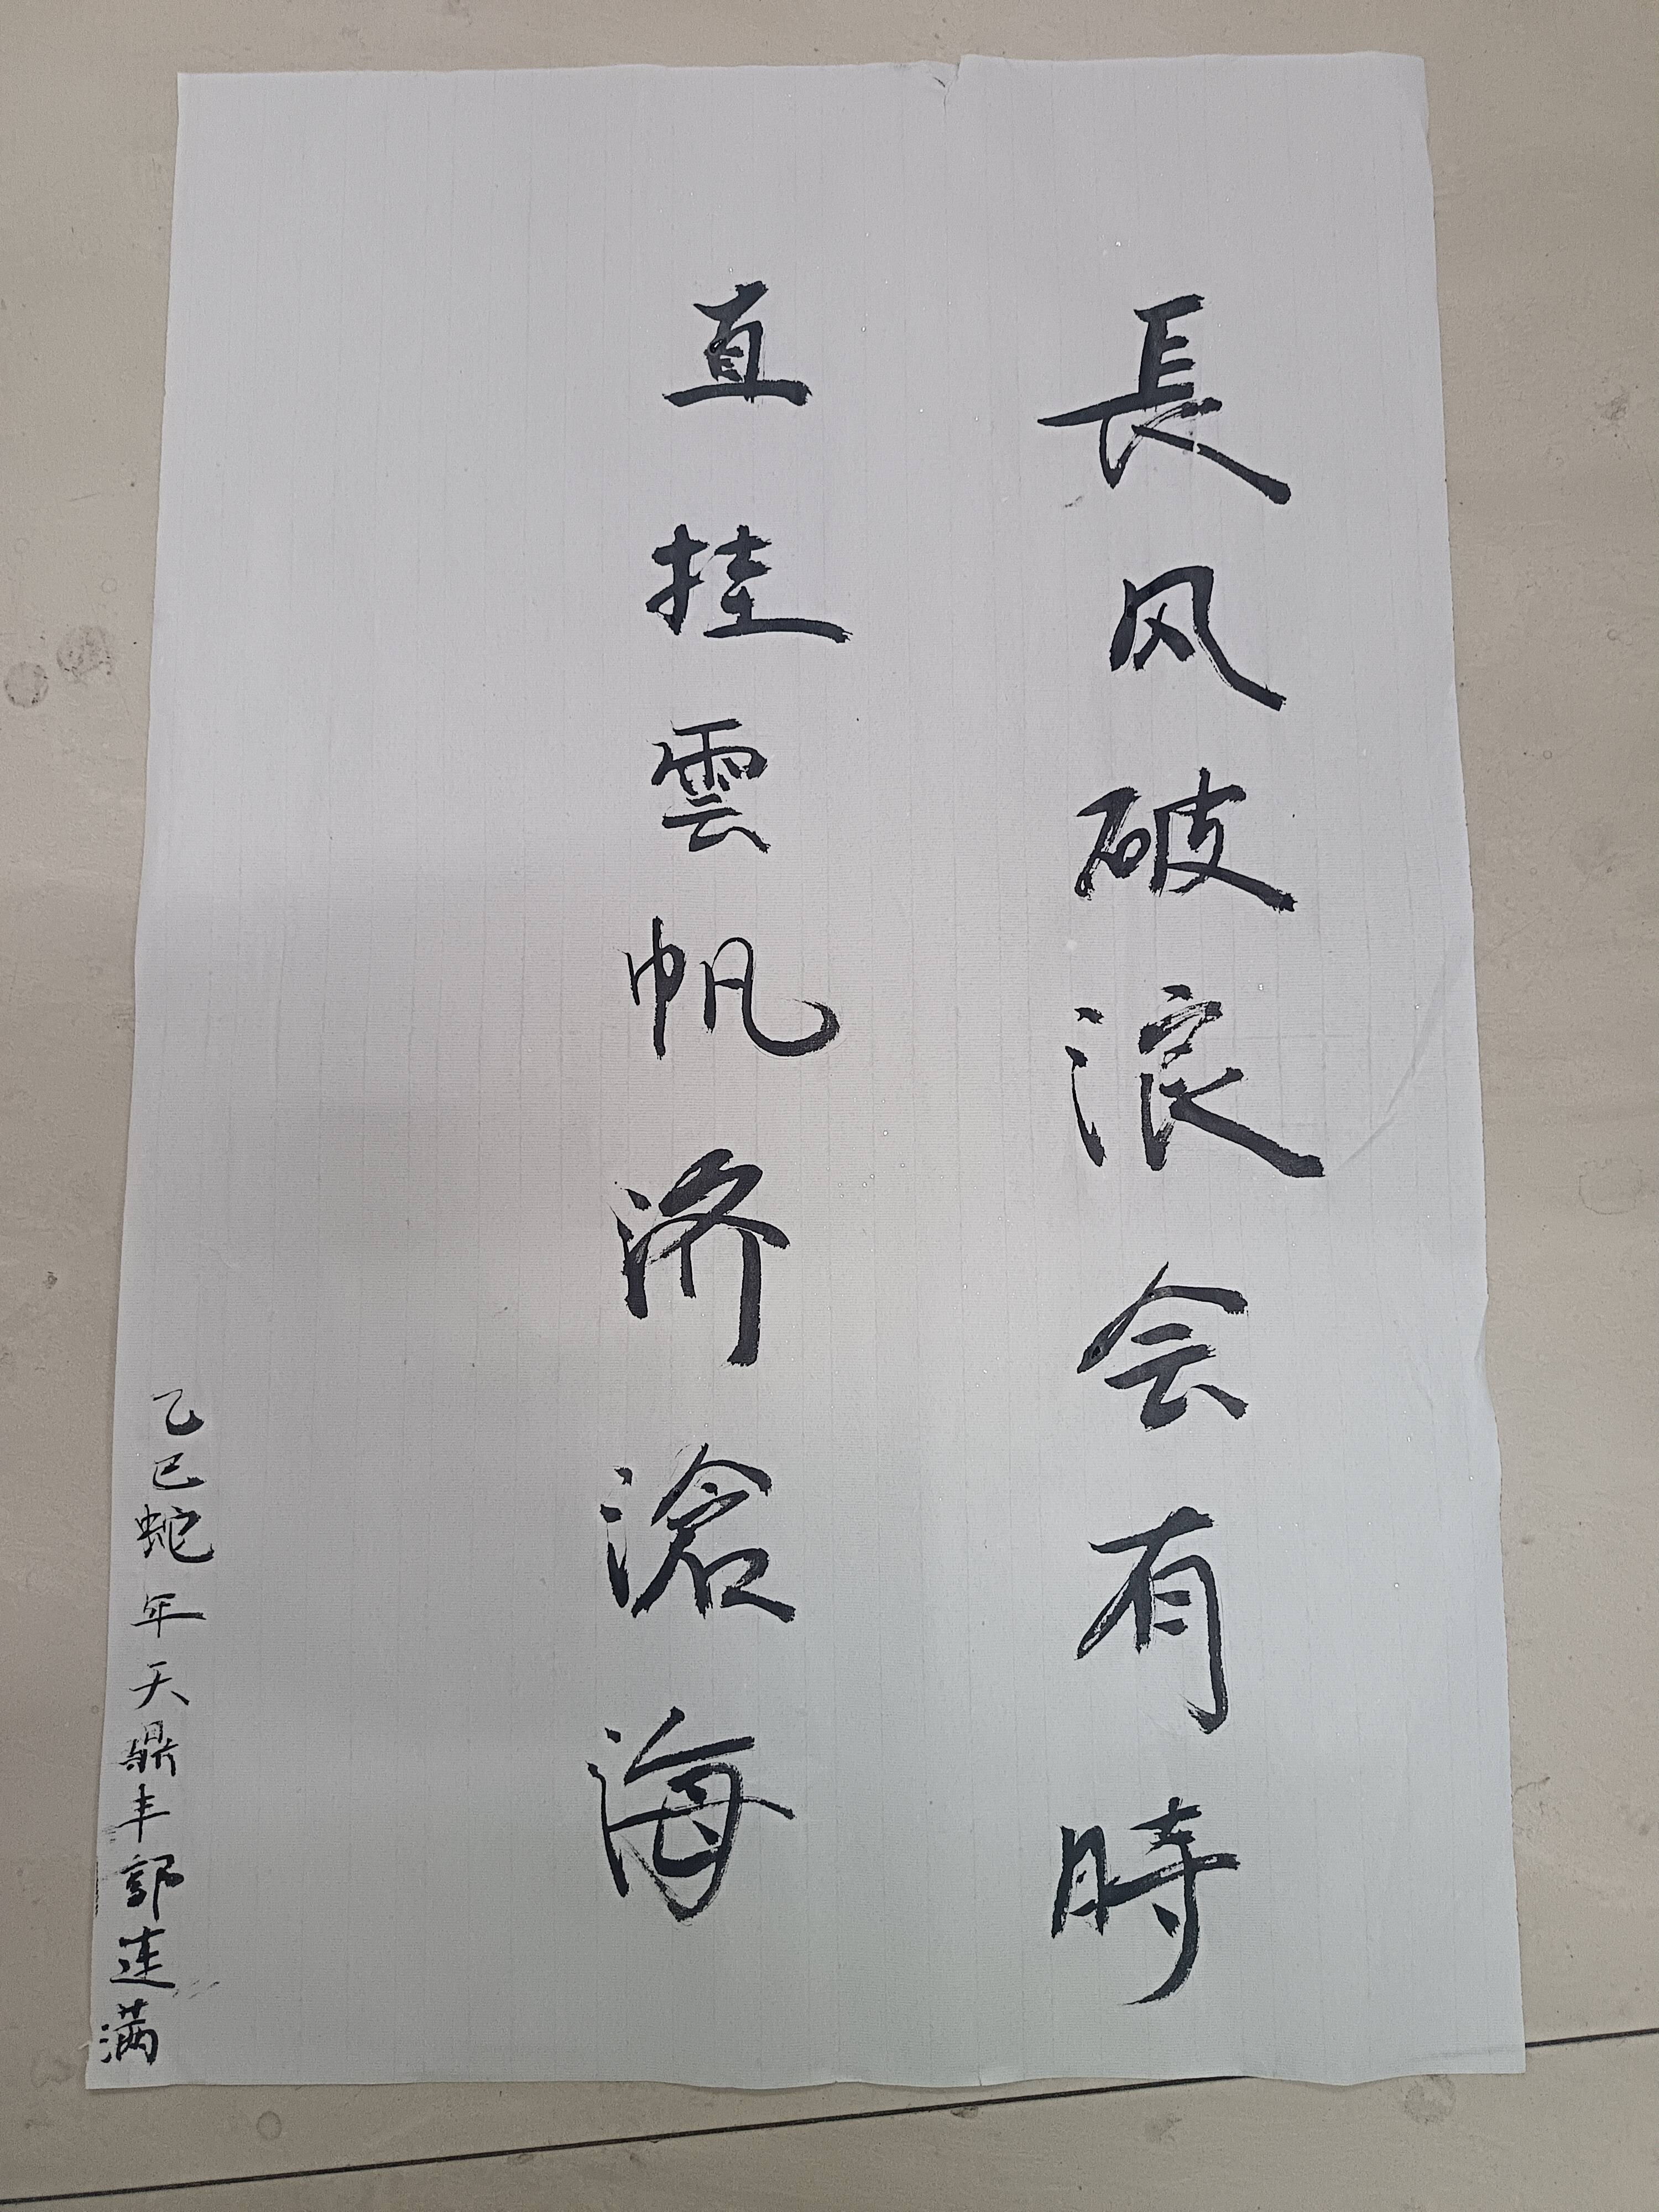 長风破浪会有時
直挂雲帆济滄海
乙巳蛇年天鼎丰郭连满